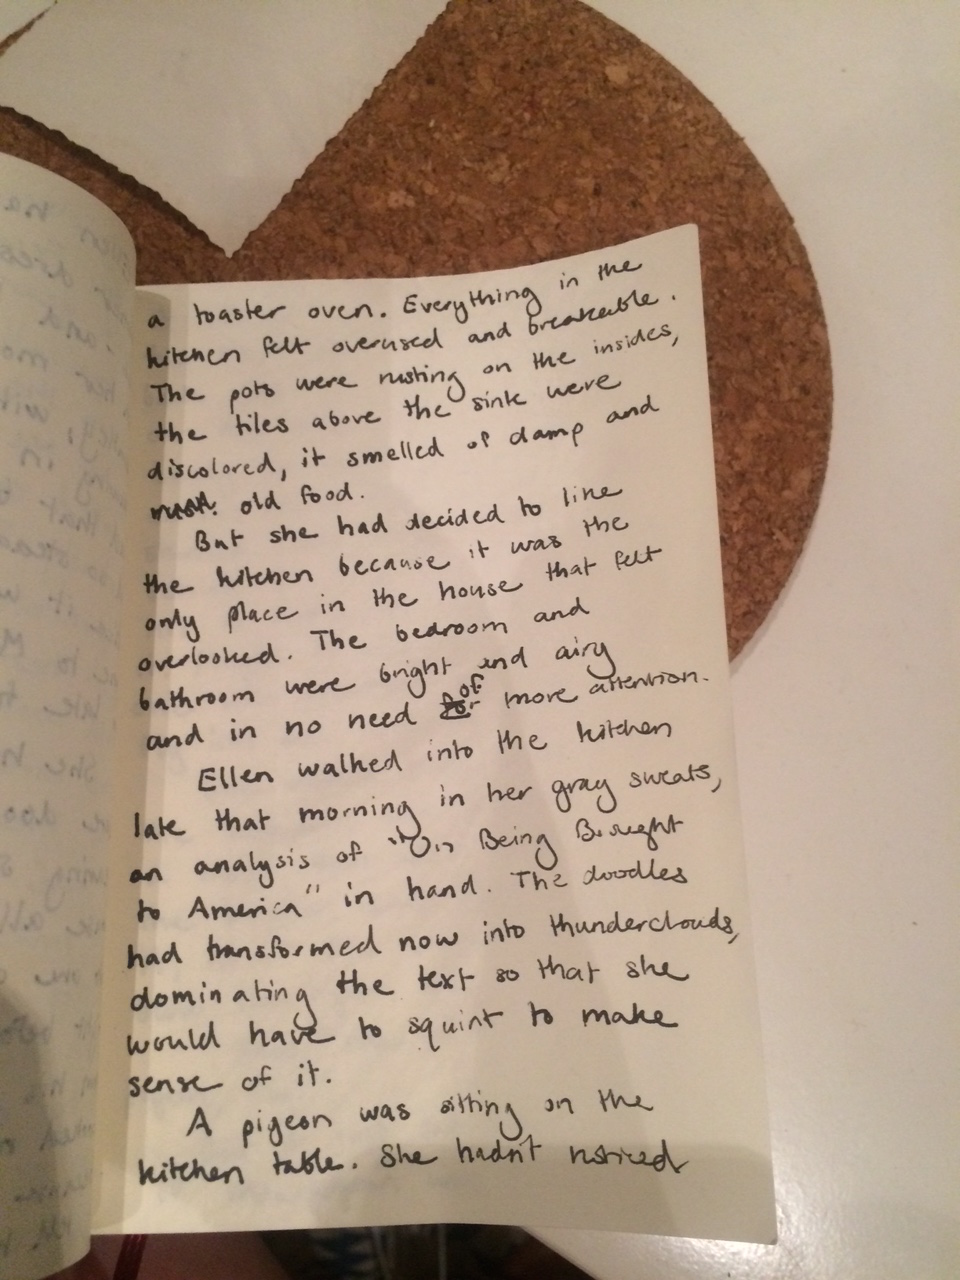 a toaster oven. Everything in the
kitchen felt overused and breakable.
The pots were rusting on the insides,
the tiles above the sink were
discolored, it smelled of damp and
old food.
But she had decided to like
the kitchen because it was the
only place in the house that felt
overlooked. The bedroom and
bathroom were bright and airy
and in no need of more attention.
Ellen walked into the kitchen
late that morning in her gray sweats,
an analysis of "On Being Brought
to America" in hand. The doodles
had transformed now into thunderclouds,
dominating the text so that she
would have to squint to make
sense of it.
A pigeon was sitting on the
kitchen table. She hadn't noticed